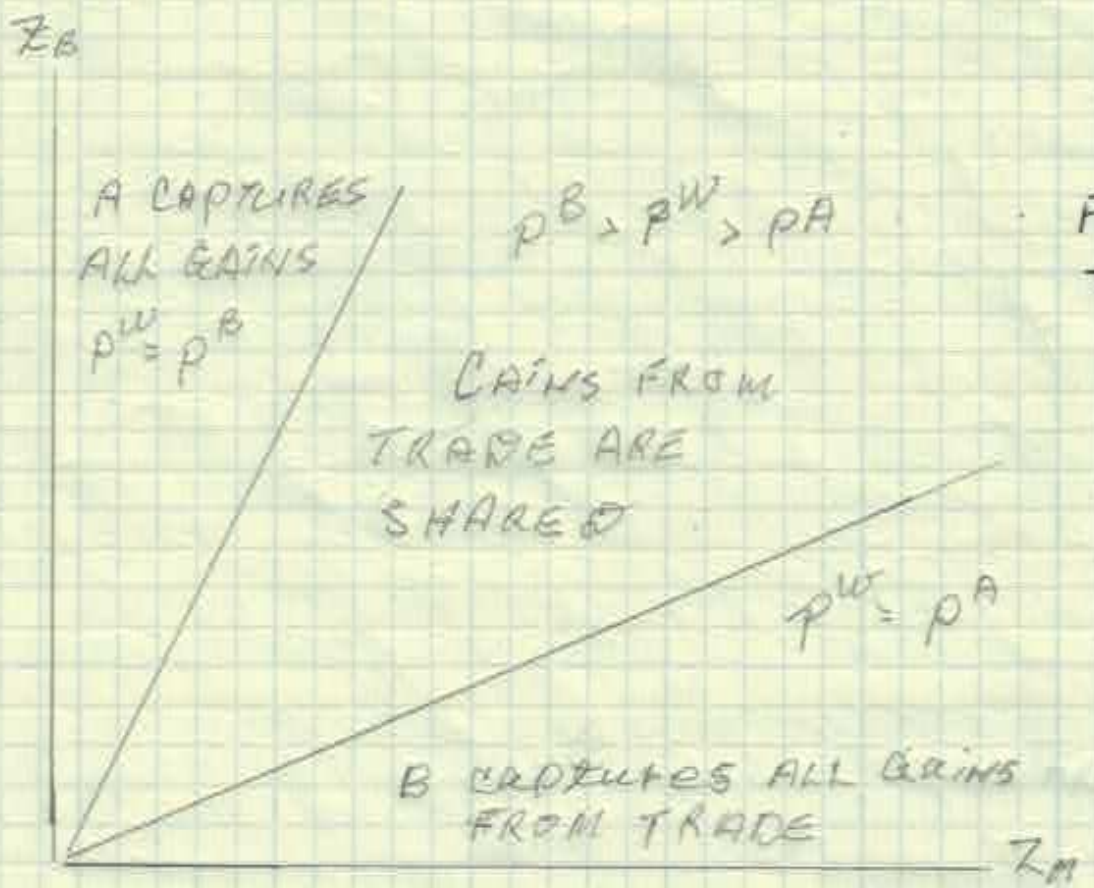 Z_B
A CAPTURES
ALL GAINS
p^W = p^B
p^B > p^W > p^A
GAINS FROM
TRADE ARE
SHARED
p^W = p^A
B CAPTURES ALL GAINS
FROM TRADE